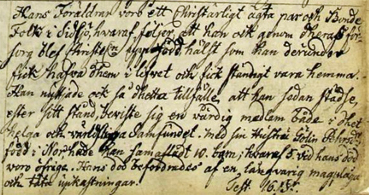 Hans Föräldrar voro ett Christärligt ägta par och Bonde
Folk i Sidsjö, hvaraf följer att han ock genom deras för
sorg blef Christeligen uppfödd hälst som han derunder
fick hafva dhem i lefvet och fick ständigt vara hemma.
Han nyttjade ock så dhetta tillfälle, att han sedan städse,
efter sitt stånd, beviste sig en värdig medlem både i dhet
helga och verldsliga Samfundet. med sin hustru
i han samaflade 10. barn, hvaraf 5. vid hans död
voro öfrige. Hans död befordrades af en långvarig magplåga
och täta upkastningar.